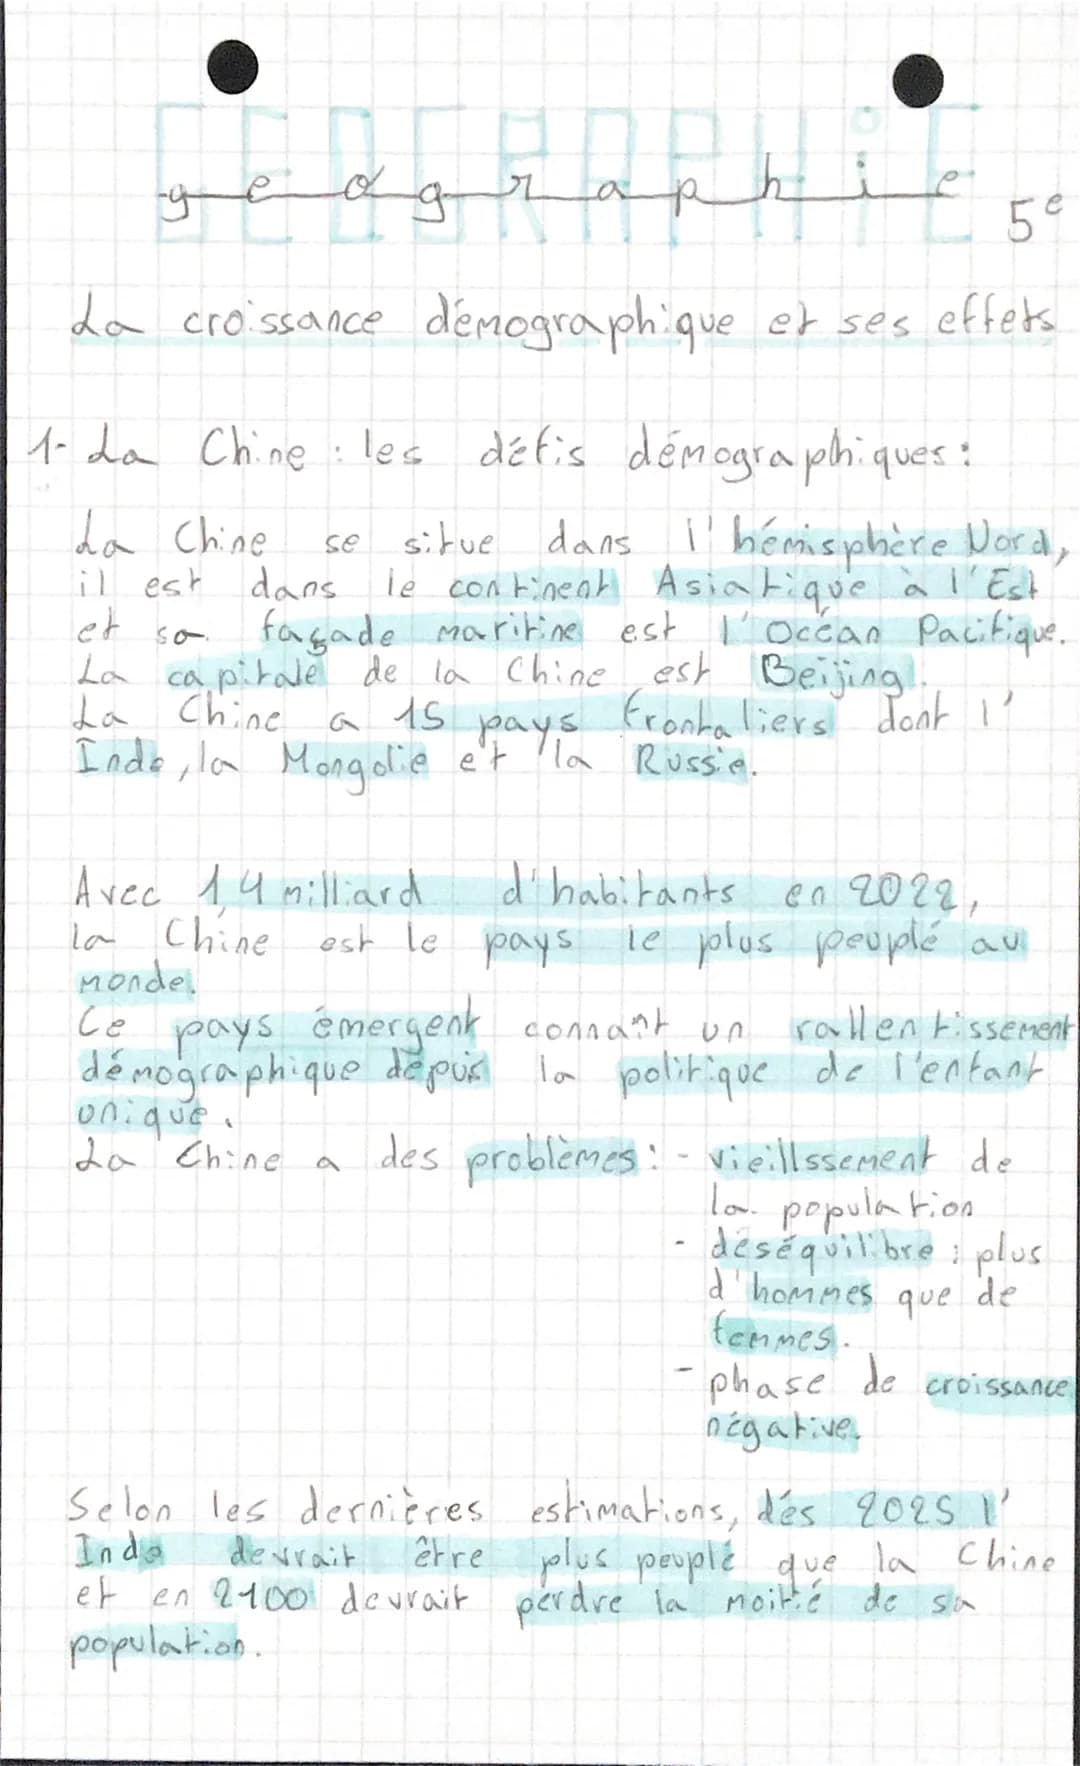 GEOGRAPHiE
geographie
5e
La croissance démographique et ses effets
1- La Chine : les défis démographiques :
La Chine se situe dans l'hémisphère Nord,
il est dans le continent Asiatique à l'Est
et sa façade maritine est l'Océan Pacifique.
La capitale de la Chine est Beijing.
La Chine a 15 pays frontaliers dont l'
Inde, la Mongolie et la Russie.
Avec 1,4 milliard d'habitants en 2022,
la Chine est le pays le plus peuplé au
monde.
Ce pays émergent connaît un rallentissement
démographique depuis la politique de l'enfant
unique.
La Chine a des problèmes : - vieillssement de
la population
- déséquilibre : plus
d'hommes que de
femmes.
- phase de croissance
négative.
Selon les dernières estimations, dés 2025 l'
Inde devrait être plus peuplé que la Chine
et en 2100 devrait perdre la moitié de sa
population.